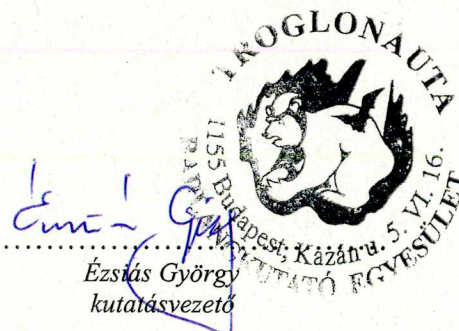 TROGLONAUTA
BARLANGKUTATÓ EGYESÜLET
1155 Budapest, Kazán u. 5. VI. 16.
Ézsiás György
kutatásvezető